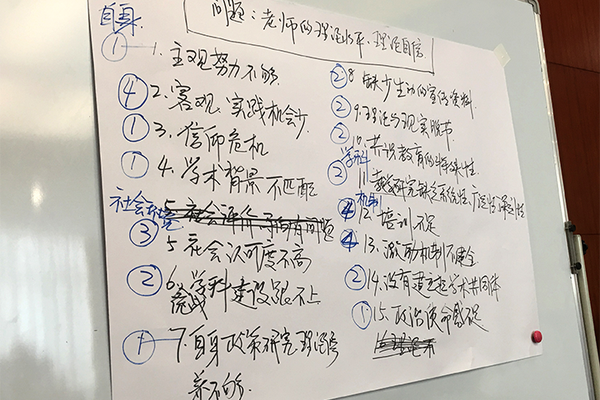 问题：老师的理论水平、理论自信
自身
① 1. 主观努力不够
④ 2. 客观、实践机会少
① 3. 信仰危机
① 4. 学术背景不匹配
社会环境
③ 5. 社会认可度不高
② 6. 学科建设跟不上
① 7. 自身政策研究理论修
养不够.
② 8. 缺少生动的宣传资料
② 9. 理论与现实脱节
② 10. 共识教育的特殊性
学科
② 11. 教学研究缺乏系统性、
机制
④ 12. 培训不足
④ 13. 激励机制不健全
② 14. 没有建立起学术共同体
① 15. 政治使命感不足